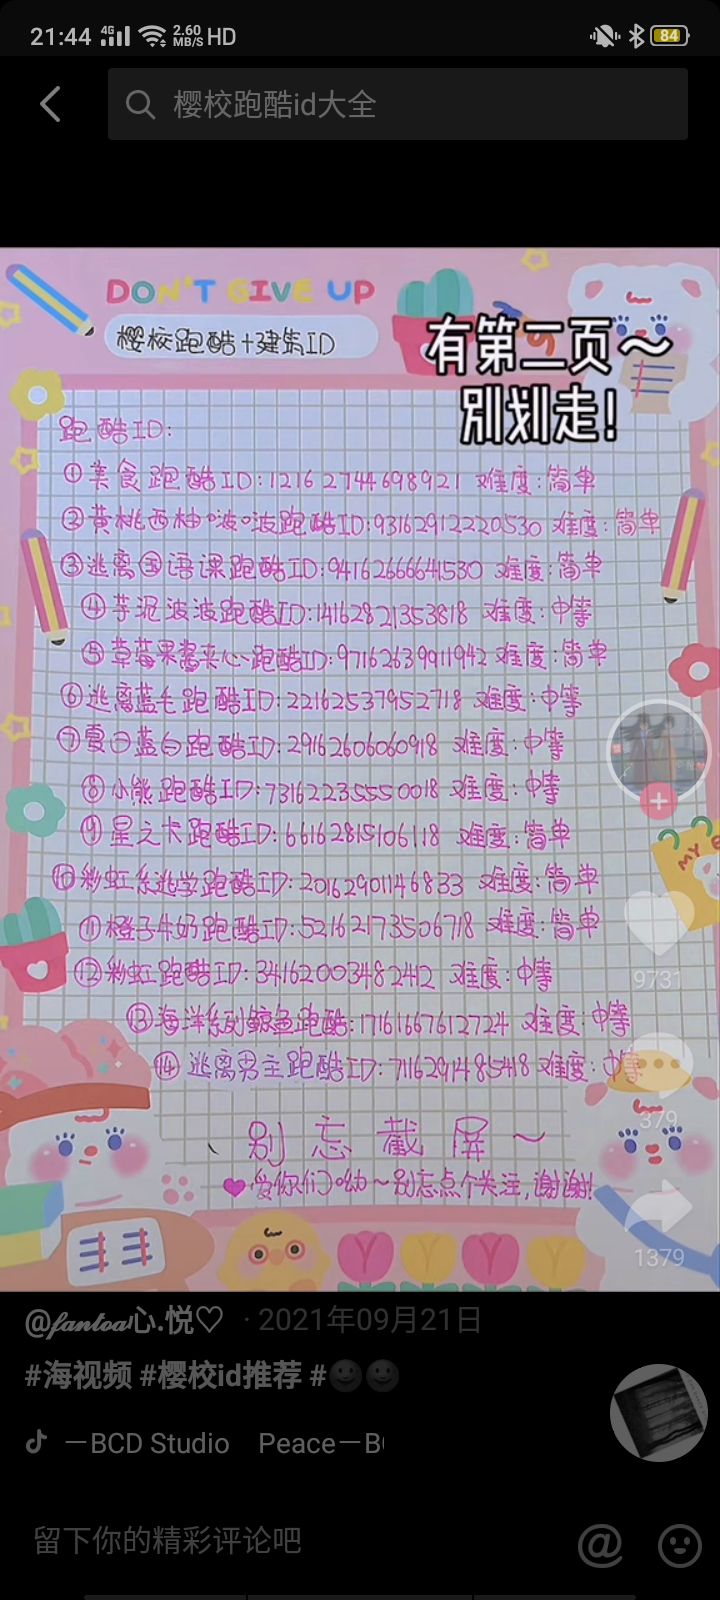 21:44 4G 2.60 MB/S HD 84
樱校跑酷id大全
DON'T GIVE UP
樱校跑酷+建筑ID
有第二页～
别划走!
跑酷ID:
①美食跑酷ID:1216 2744698921 难度:简单
②黄桃西柚°啵°波跑酷ID:93162912220530 难度:简单
③逃离国语课跑酷ID:94162666641530 难度:简单
④芋泥波波跑酷ID:14162821353818 难度:中等
⑤草莓果酱夹心跑酷ID:97162639911942 难度:简单
⑥逃离蓝毛跑酷ID:22162537952718 难度:中等
⑦夏日蓝白跑酷ID:29162606060918 难度:中等
⑧小熊跑酷ID:73162235550018 难度:中等
⑨星之卡跑酷ID:66162815106118 难度:简单
⑩彩虹系逃学跑酷ID:20162901146833 难度:简单
⑪橙子牛奶跑酷ID:52162173506718 难度:简单
⑫彩虹跑酷ID:34162003482412 难度:中等
⑬海洋系列鲸鱼跑酷:17161667612724 难度:中等
⑭逃离男主跑酷ID:7116291485418 难度:中等
别忘截屏～
爱你们呦～别忘点个关注,谢谢!
MY
9731
379
1379
@fantoa心.悦♡ · 2021年09月21日
#海视频 #樱校id推荐 #🌚🌚
一BCD Studio Peace一B
留下你的精彩评论吧